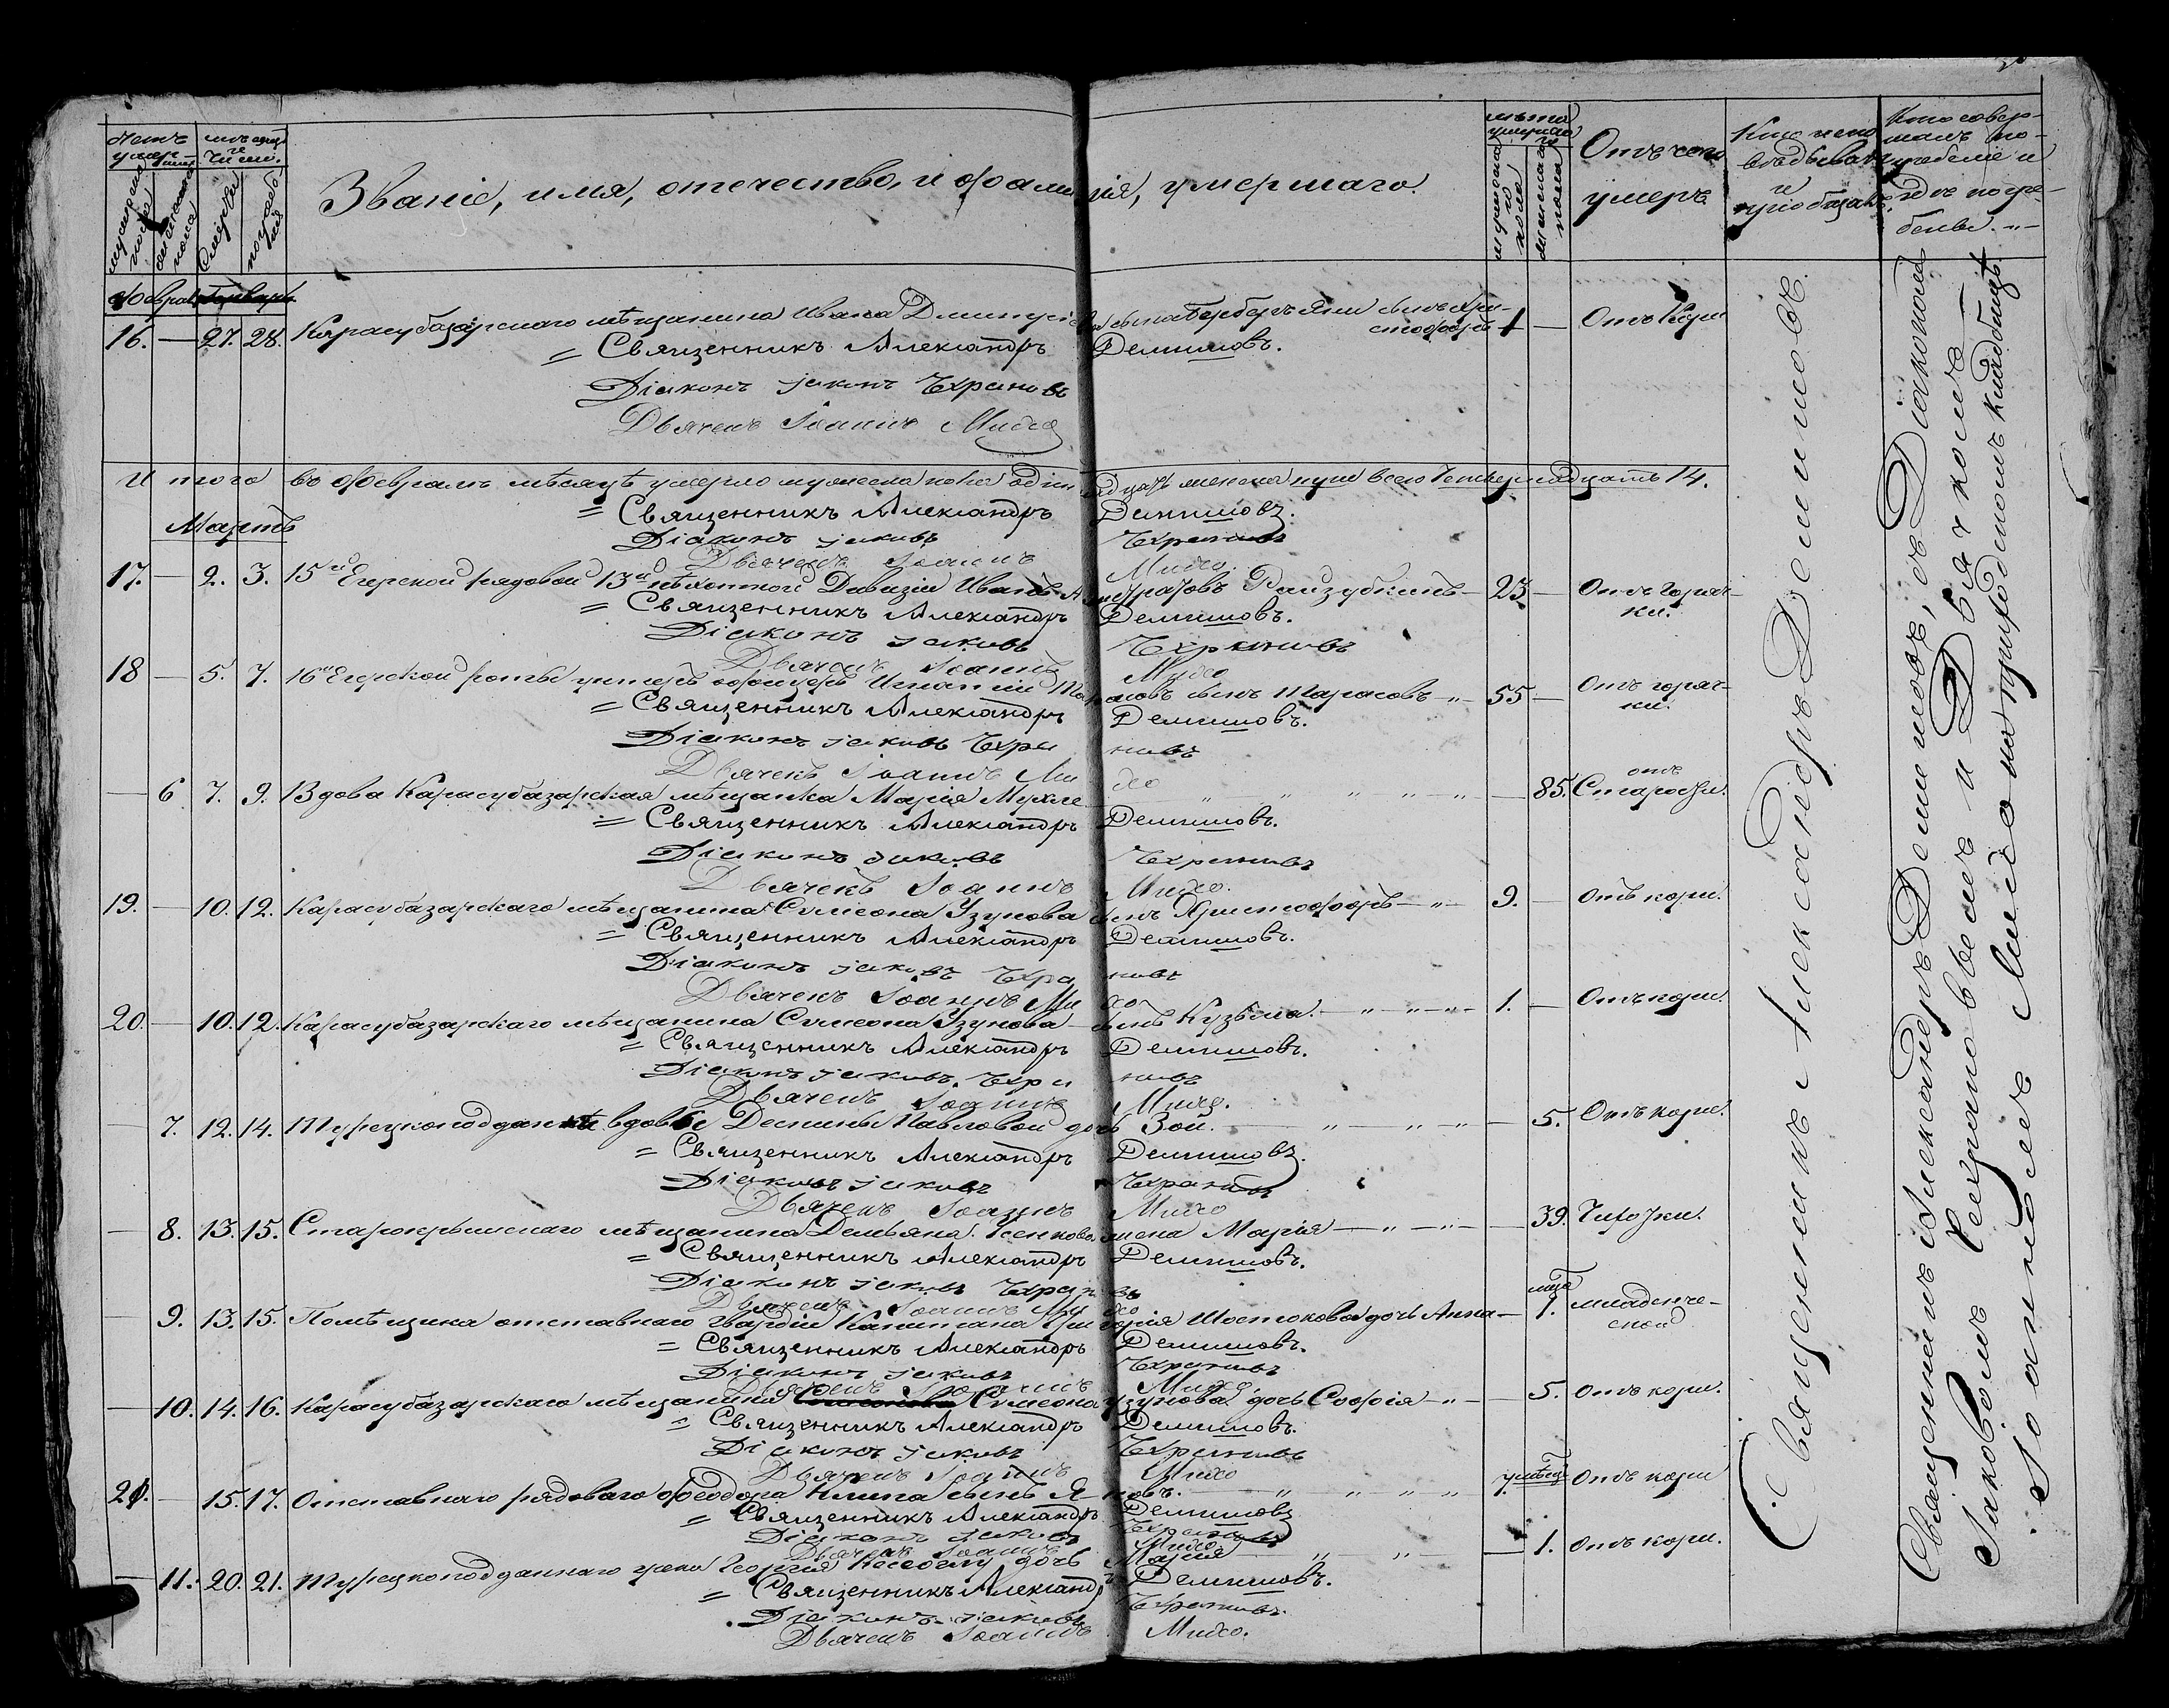 Счетъ умер-
шихъ
мужеска пола
женска пола
мѣсяцъ
и
числ.
Смерти
погребе-
нія
Званіе, имя, отечество, и фамилія, умершаго.
лѣта
умершаго
мужеска
го
пола
женскаго
пола
Отъ чего
умеръ
Кто испо-
вѣдывалъ
и
пріобщалъ.
Кто совер-
шалъ по-
гребеніе и
гдѣ погре-
бены.
Февраль
16. — 27. 28. Карасубазарскаго мѣщанина Ивана Дмитріева сына сынъ Хри-
стофоръ 1 — Отъ кори
= Священникъ Александръ Демишовъ.
Діаконъ Іаковъ
Дьячекъ Іоаннъ Михо
И того въ Февралѣ мѣсяцѣ умерло мужеска пола одиннадцать женска три всего четырнадцать 14.
= Священникъ Александръ Демишовъ.
Діаконъ Іаковъ
Дьячекъ Іоаннъ Михо.
Мартъ
17. — 2. 3. 15й Егерской рядовой 13й пѣхотной Дивизіи Иванъ — 23 — Отъ горяч-
ки.
= Священникъ Александръ Демишовъ.
Діаконъ Іаковъ
Дьячекъ Іоаннъ Михо
18 — 5. 7. 16й Егерской роты унтеръ офицеръ Игнатій сынъ Тарасовъ 55 — Отъ горяч-
ки.
= Священникъ Александръ Демишовъ.
Діаконъ Іаковъ
Дьячекъ Іоаннъ Михо
— 6 7. 9. Вдова Карасубазарская мѣщанка Марія — 85. отъ
Старости.
= Священникъ Александръ Демишовъ.
Діаконъ Іаковъ
Дьячекъ Іоаннъ Михо.
19. — 10. 12. Карасубазарскаго мѣщанина Сумеона Узунова сынъ Христофоръ 9. — Отъ кори.
= Священникъ Александръ Демишовъ.
Діаконъ Іаковъ
Дьячекъ Іоаннъ Михо
20. — 10. 12. Карасубазарскаго мѣщанина Сумеона Узунова сынъ Кузьма. 1. — Отъ кори.
= Священникъ Александръ Демишовъ.
Діаконъ Іаковъ
Дьячекъ Іоаннъ Михо.
— 7. 12. 14. Турецкоподданной вдовы Деспины Павловой дочь Зои. — 5. Отъ кори.
= Священникъ Александръ Демишовъ.
Діаконъ Іаковъ
Дьячекъ Іоаннъ Михо
— 8. 13. 15. Старокрымскаго мѣщанина Демьяна жена Марія — 39. Чахотки.
= Священникъ Александръ Демишовъ.
Діаконъ Іаковъ
Дьячекъ Іоаннъ Михо
— 9. 13. 15. Помѣщика отставнаго Гвардіи Капитана Григорія Шостокова дочь Анна — мца
1. младенче-
ской
= Священникъ Александръ Демишовъ.
Діаконъ Іаковъ
Дьячекъ Іоаннъ Михо.
— 10. 14. 16. Карасубазарскаго мѣщанина Сумеона Узунова дочь Софія — 5. Отъ кори.
= Священникъ Александръ Демишовъ.
Діаконъ Іаковъ
Дьячекъ Іоаннъ Михо
21. — 15. 17. Отставнаго рядоваго Феодора сынъ Отъ кори
= Священникъ Александръ Демишовъ
Діаконъ Іаковъ
Дьячекъ Іоаннъ Михо
— 11. 20. 21. Турецкоподданнаго грека Георгія дочь Марія — 1. Отъ кори.
= Священникъ Александръ Демишовъ.
Діаконъ Іаковъ
Дьячекъ Іоаннъ Михо.
Священникъ Александръ Демишовъ.
Священникъ Александръ Демишовъ, съ Діакономъ
Іаковомъ и Дьячкомъ
Іоанномъ Михо на приходскомъ кладбищѣ.